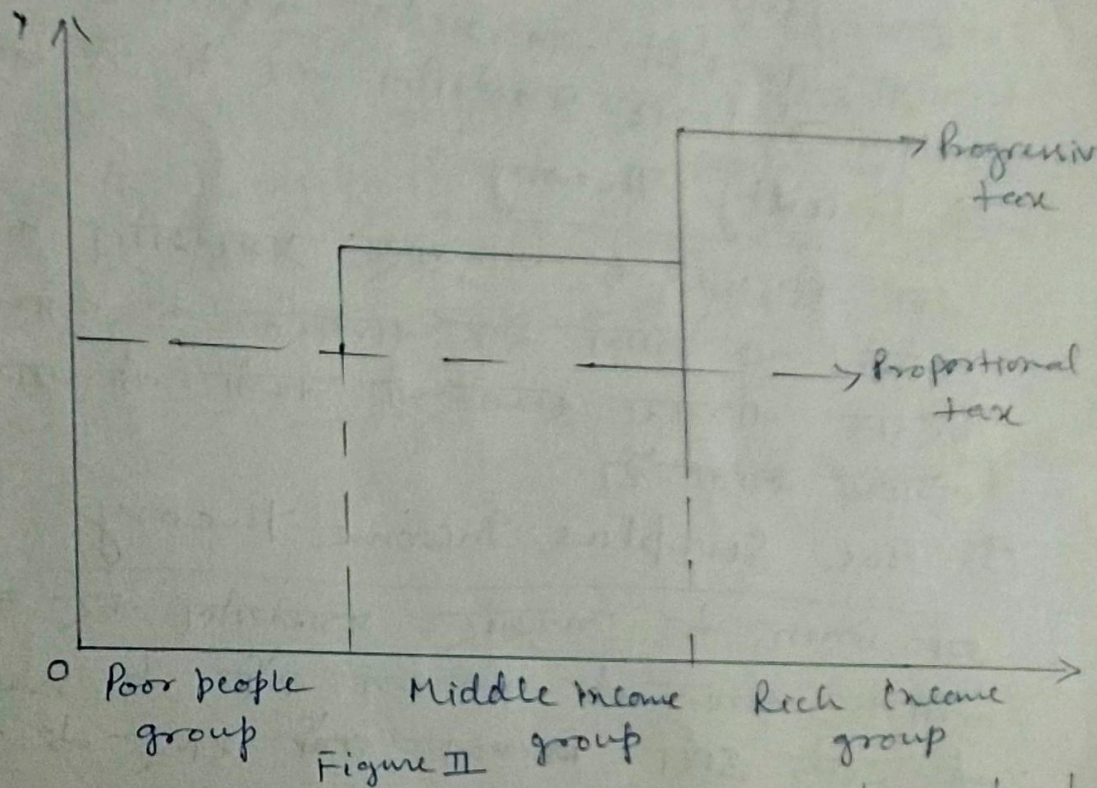 Y
Progressiv
tax
Proportional
tax
O
Poor people
group
Middle income
group
Rich income
group
Figure II